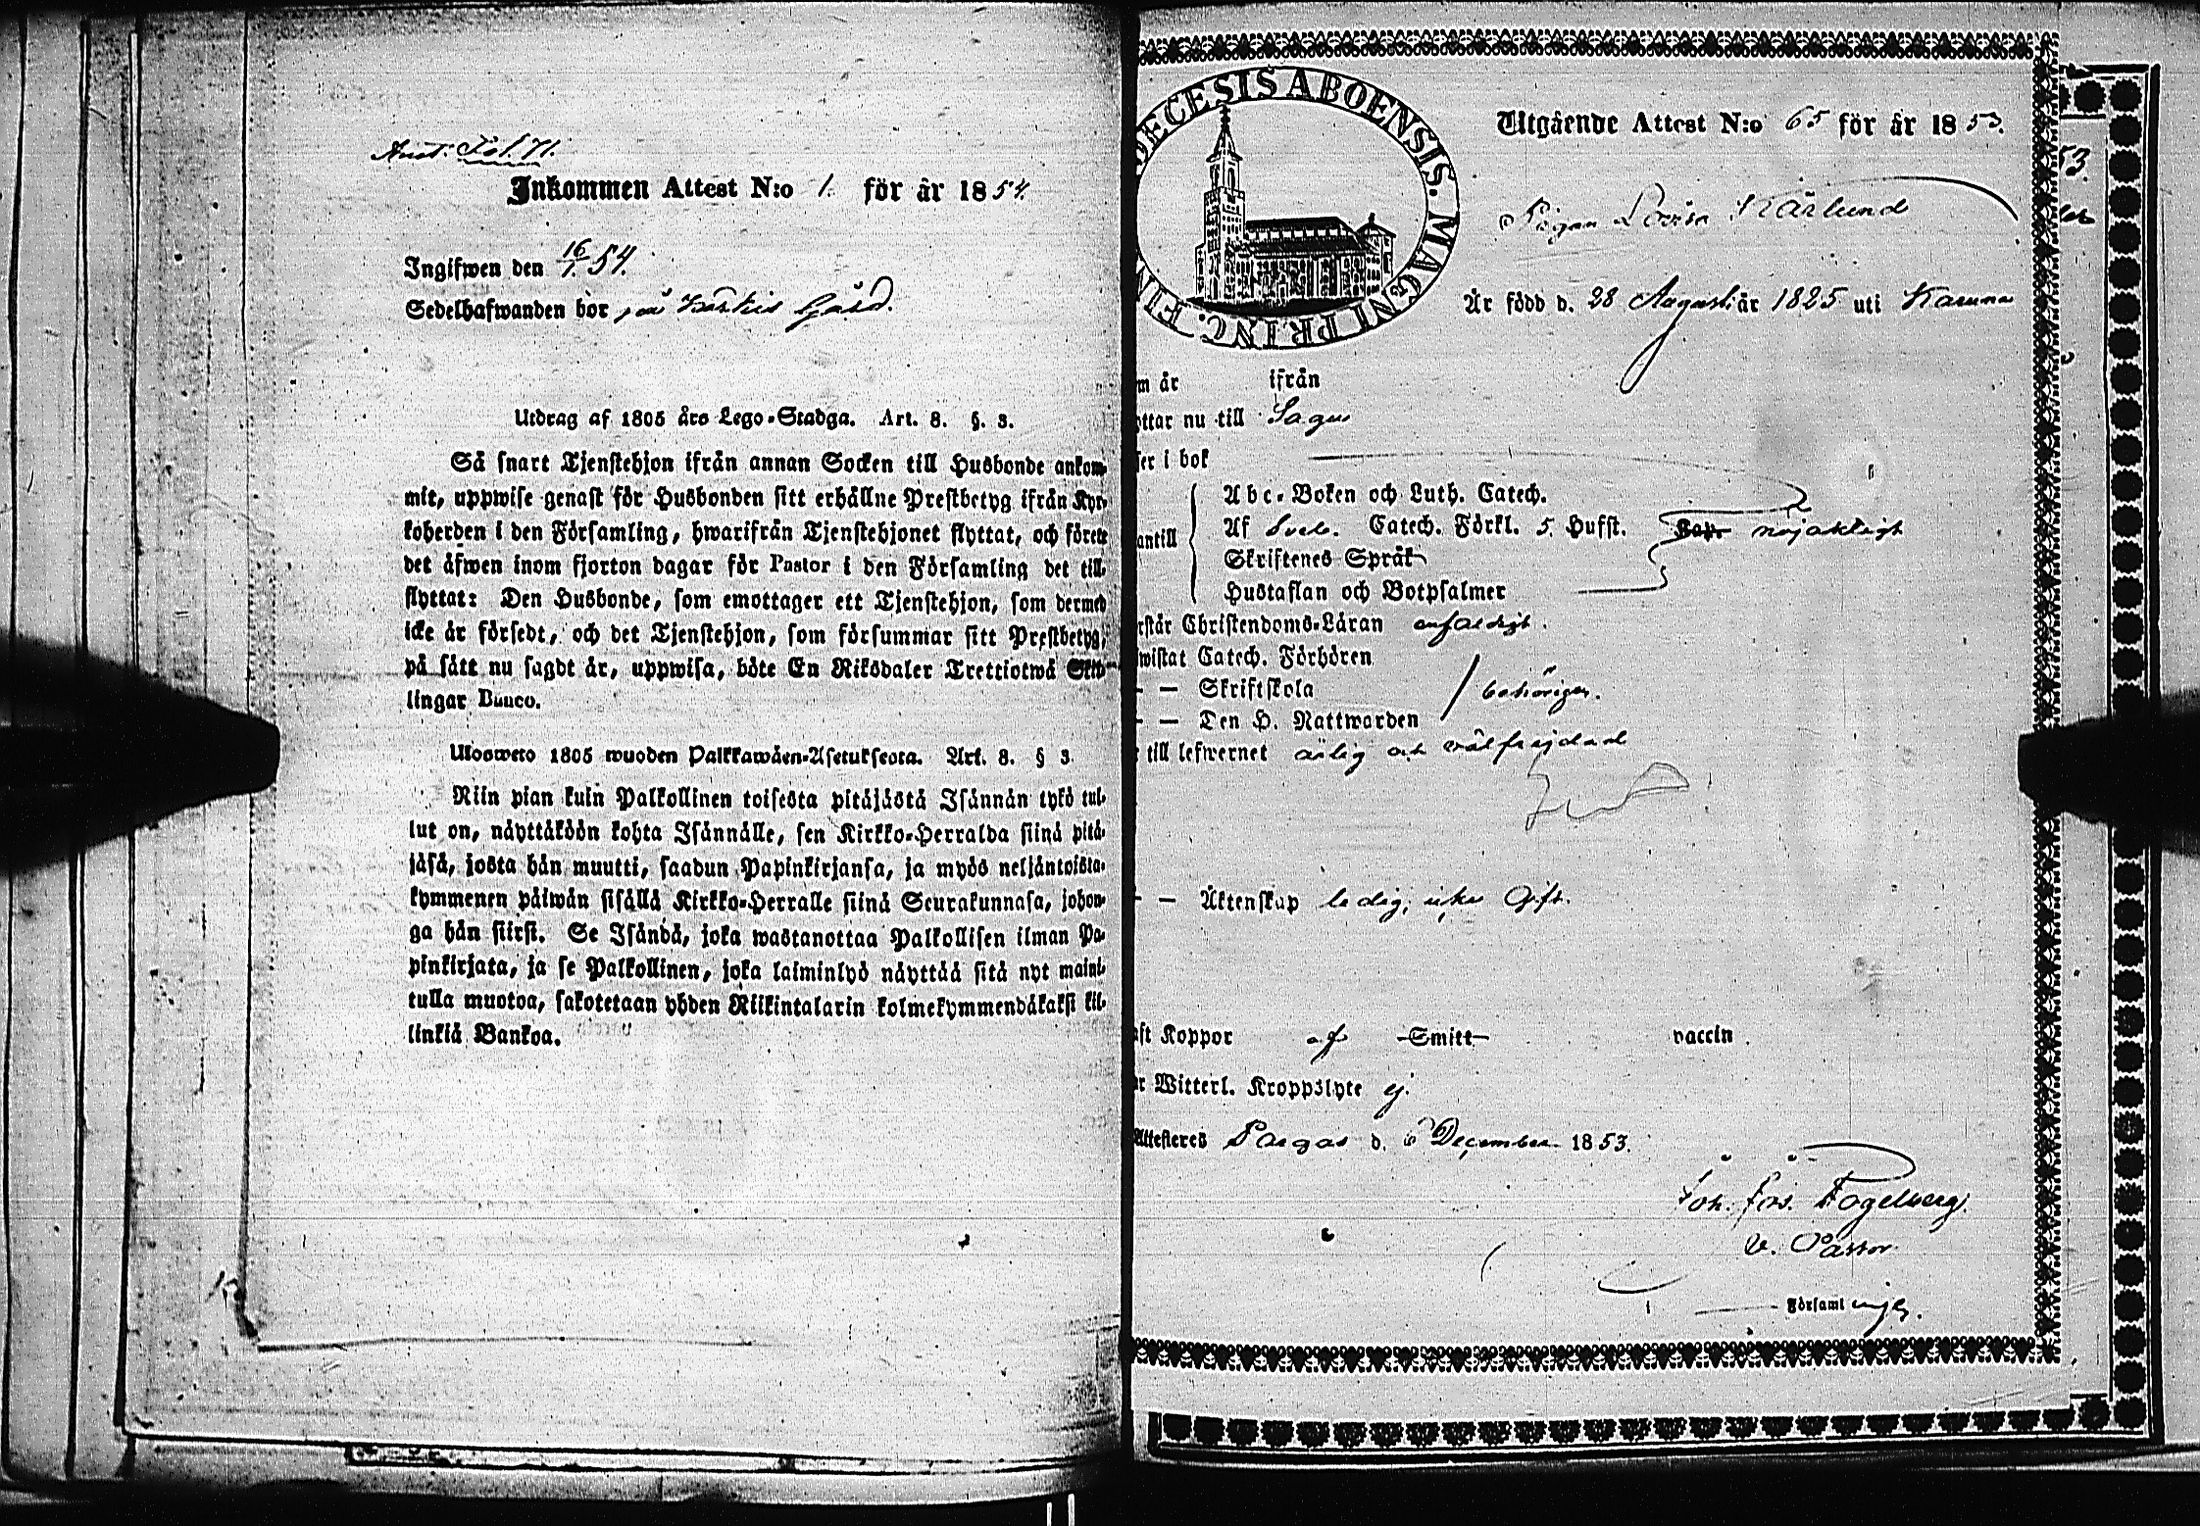 Anst. Fol. 71.
Inkommen Attest N:o 1. för år 1854.
Ingifwen den 16/1. 54.
Sedelhafwanden bor på Gård.
Utdrag af 1805 års Lego-Stadga. Art. 8. §. 3.
Så snart Tjenstehjon ifrån annan Socken till Husbonde ankom-
mit, uppwise genast för Husbonden sitt erhållne Prestbetyg ifrån Kyr-
koherden i den Församling, hwarifrån Tjenstehjonet flyttat, och förete
det äfwen inom fjorton dagar för Pastor i den Församling det till-
flyttat: Den Husbonde, som emottager ett Tjenstehjon, som dermed
icke är försedt, och det Tjenstehjon, som försummar sitt Prestbetyg,
på sätt nu sagdt är, uppwisa, böte En Riksdaler Trettiotwå Skil-
lingar Banco.
Ulosweto 1805 wuoden Palkkawäen-Asetuksesta. Art. 8. § 3.
Niin pian kuin Palkollinen toisesta pitäjästä Isännän tykö tul-
lut on, näyttäköön kohta Isännälle, sen Kirkko-Herralda siinä pitä-
jäsä, josta hän muutti, saadun Papinkirjansa, ja myös neljäntoista-
kymmenen päiwän sisällä Kirkko-Herralle siinä Seurakunnasa, johon-
ga hän siirsi. Se Isändä, joka wastanottaa Palkollisen ilman Pa-
pinkirjata, ja se Palkollinen, joka laiminlyö näyttää sitä nyt maini-
tulla muotoa, sakotetaan yhden Riikintalarin kolmekymmendäkaksi kil-
linkiä Bankoa.
ECESIS ABOENSIS. MAGNI PRINC. FIN
Utgående Attest N:o 65 för år 1853.
53.
Pigan Lovisa Kärlund
Är född d. 28 Augusti år 1825 uti Karuna
m år ifrån
ttar nu till Sagu
ser i bok
Abc-Boken och Luth. Catech.
antill Af Svebe. Catech. Förkl. 5. Hufst. nöjaktigt
Skriftenes Språk
Hustaflan och Botpsalmer
rstår Christendoms-Läran enfaldigt.
wistat Catech. Förhören
— — Skriftskola behörigen.
— — Den H. Nattwarden
till lefwernet ärlig och välfrejdad
— — Äktenskap ledig, icke Gift.
ft Koppor af Smitt vaccin
r Witterl. Kroppslyte ej.
Attesteres Pargas d. 6 December 1853.
Joh. Fogelberg.
V. Pastor
Församl